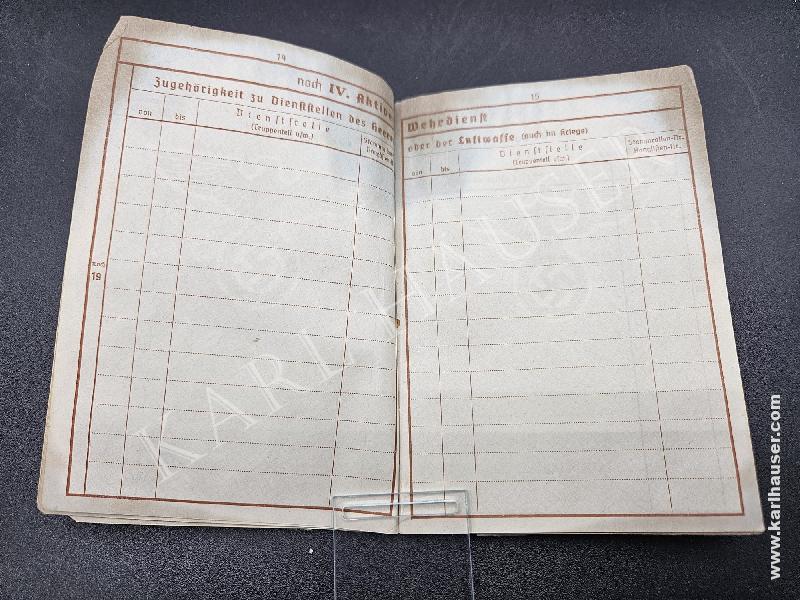 14
noch IV. Aktiver
Zugehörigkeit zu Dienststellen des Heeres
von
bis
Dienststelle
(Truppenteil usw.)
noch
19
15
Wehrdienst
oder der Luftwaffe (auch im Kriege)
von
bis
Dienststelle
(Truppenteil usw.)
Stammrollen-Nr.
Ranglisten-Nr.
KARL HAUSER
www.karlhauser.com